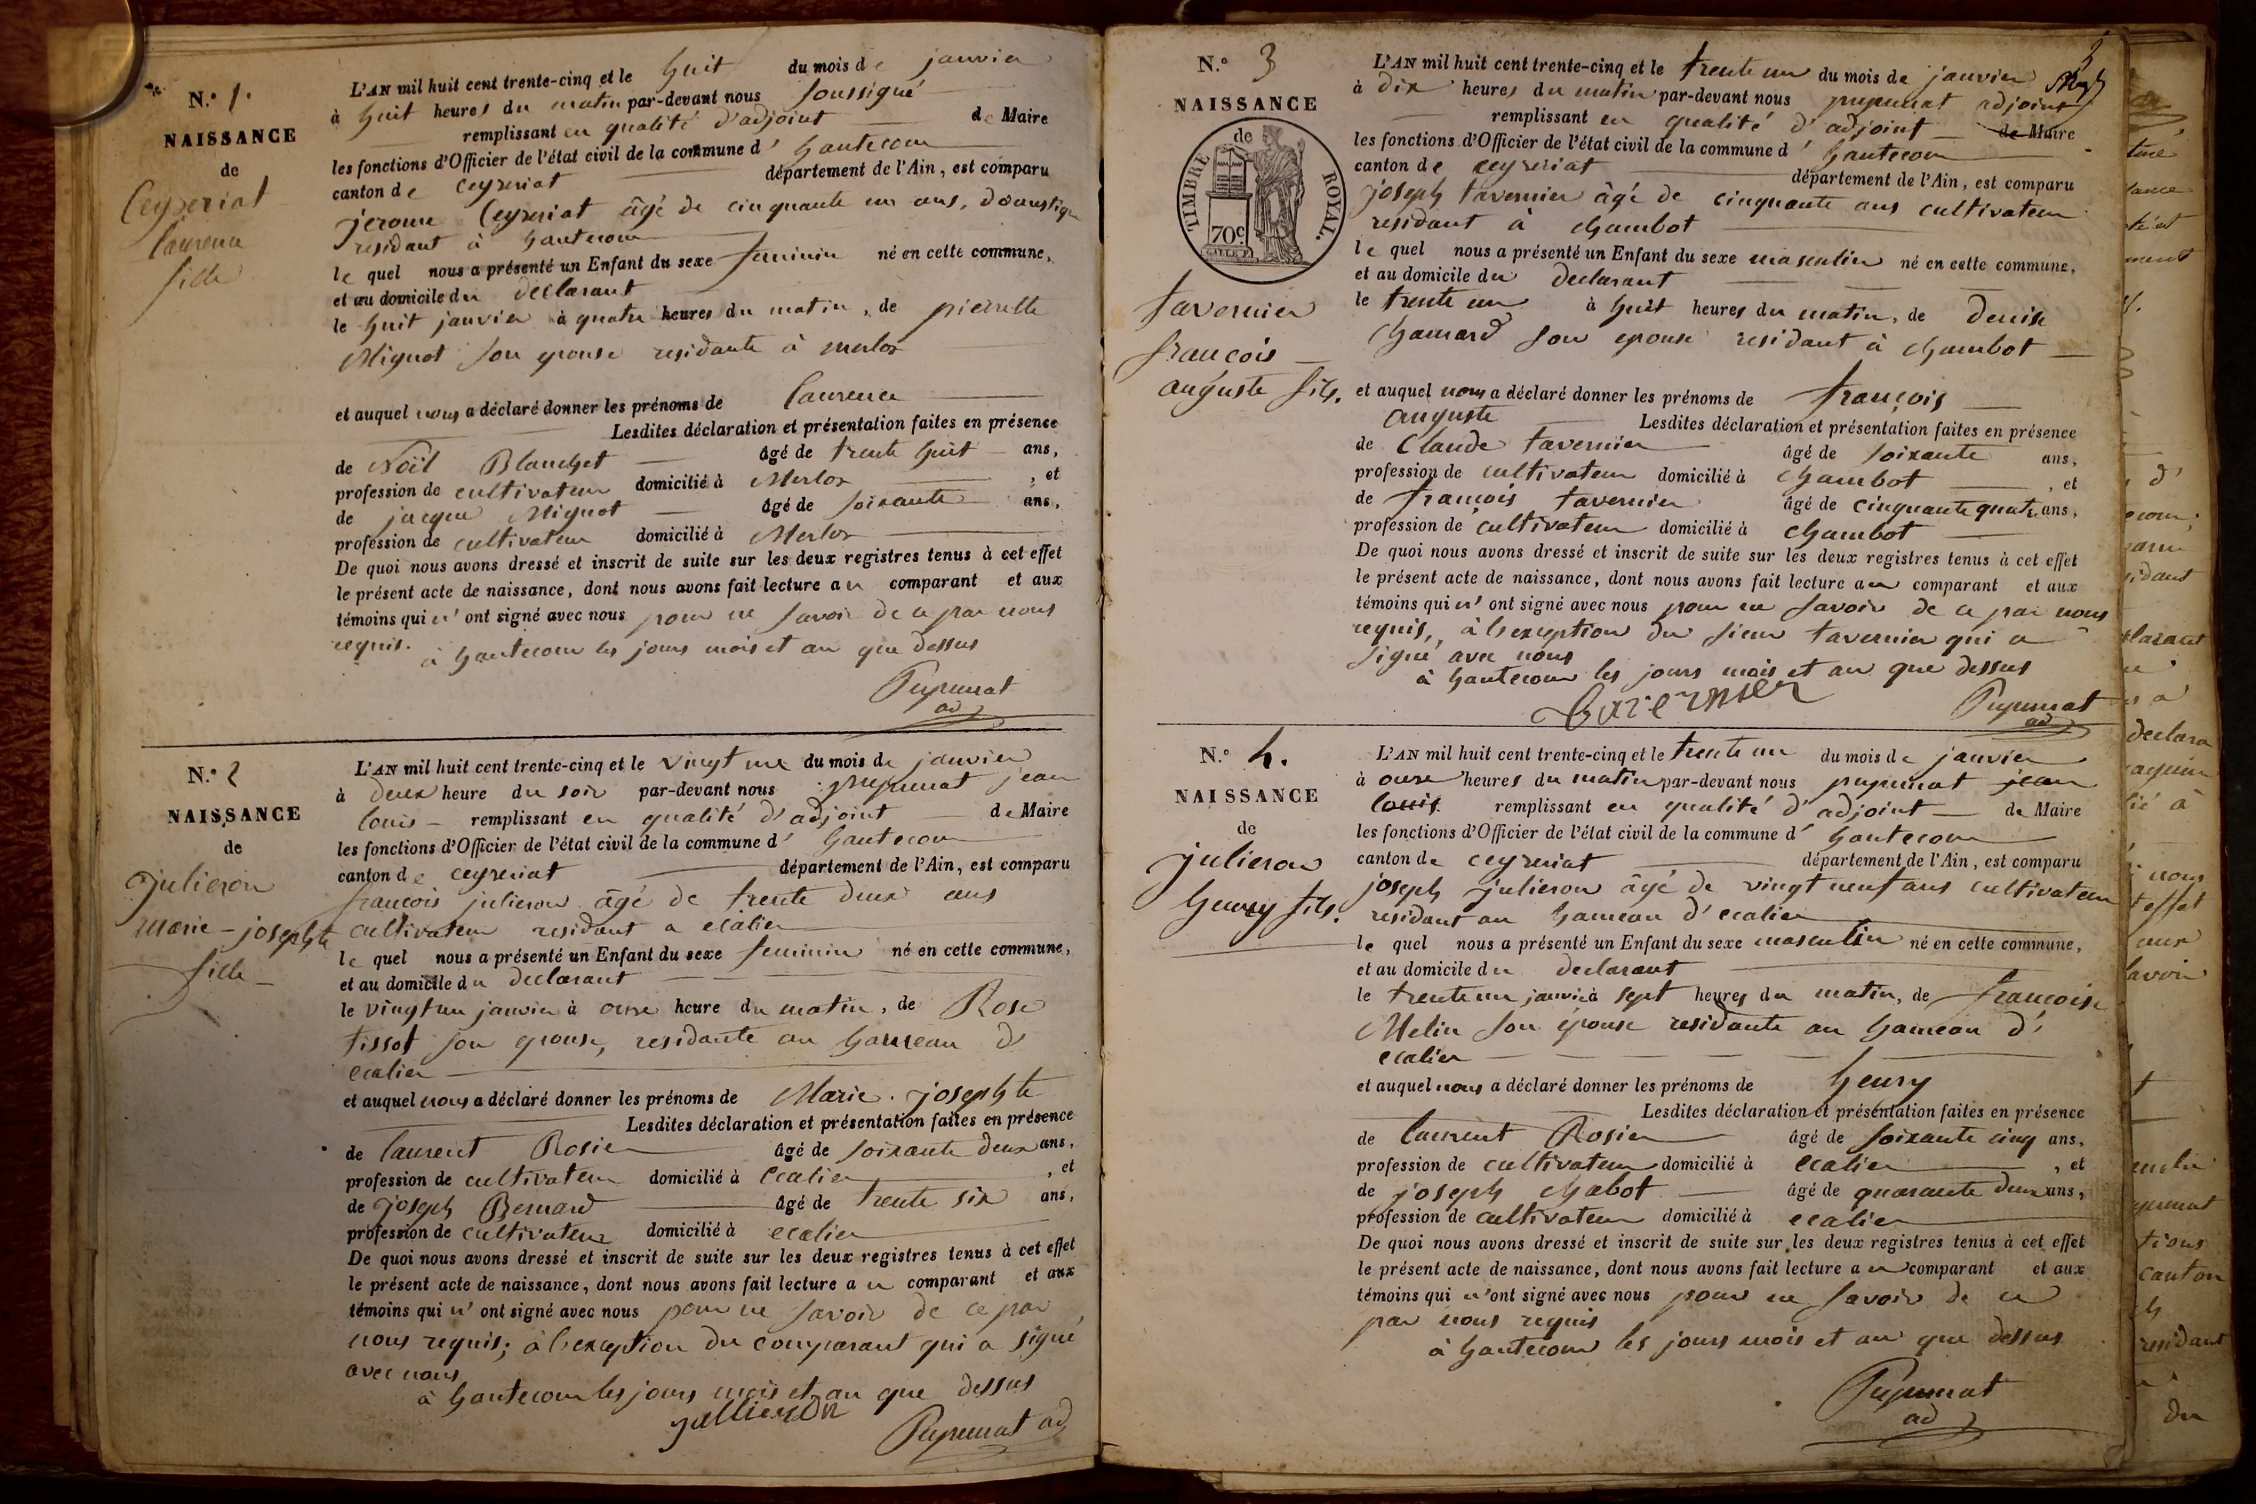 N.° 1.
NAISSANCE
de
Ceyzeriat
laurence
fille
L'AN mil huit cent trente-cinq et le huit du mois de janvier
à huit heures du matin par-devant nous soussigné
remplissant en qualité d'adjoint de Maire
les fonctions d'Officier de l'état civil de la commune d' hautecour
canton de ceyzeriat département de l'Ain, est comparu
jerome Ceyzeriat âgé de cinquante un ans, domestique
residant à hautecour
le quel nous a présenté un Enfant du sexe feminin né en cette commune,
et au domicile du declarant
le huit janvier à quatre heures du matin, de pierrette
Mignot son epouse residante à merlos
et auquel nous a déclaré donner les prénoms de laurence
Lesdites déclaration et présentation faites en présence
de Noël Blanchet âgé de trente huit ans,
profession de cultivateur domicilié à Merlos, et
de jacque Mignot âgé de soixante ans,
profession de cultivateur domicilié à Merlos
De quoi nous avons dressé et inscrit de suite sur les deux registres tenus à cet effet
le présent acte de naissance, dont nous avons fait lecture au comparant et aux
témoins qui n'ont signé avec nous pour ne savoir de ce par nous
requis.
à hautecour les jours mois et an que dessus
Pupunat
ad
N.° 2
NAISSANCE
de
julieron
marie-josephte
fille
L'AN mil huit cent trente-cinq et le vingt un du mois de janvier
à deux heure du soir par-devant nous pupunat jean
louis remplissant en qualité d'adjoint de Maire
les fonctions d'Officier de l'état civil de la commune d' hautecour
canton de ceyzeriat département de l'Ain, est comparu
francois julieron âgé de trente deux ans
cultivateur residant a ecalier
le quel nous a présenté un Enfant du sexe feminin né en cette commune,
et au domicile du declarant
le vingt un janvier à onze heure du matin, de Rose
tissot son epouse, residante au hameau d'
ecalier
et auquel nous a déclaré donner les prénoms de Marie. josephte
Lesdites déclaration et présentation faites en présence
de laurent Rosier âgé de soixante deux ans,
profession de cultivateur domicilié à Ecalier, et
de joseph Bernard âgé de trente six ans,
profession de cultivateur domicilié à ecalier
De quoi nous avons dressé et inscrit de suite sur les deux registres tenus à cet effet
le présent acte de naissance, dont nous avons fait lecture au comparant et aux
témoins qui n'ont signé avec nous pour ne savoir de ce par
nous requis; à l'exception du comparant qui a signé
avec nous
à hautecour les jours mois et an que dessus
jullieron
Pupunat ad
3
N.° 3
NAISSANCE
de
TIMBRE ROYAL.
70c
tavernier
francois
auguste fils.
L'AN mil huit cent trente-cinq et le trente un du mois de janvier
à dix heures du matin par-devant nous pupunat adjoint
remplissant en qualité d'adjoint de Maire
les fonctions d'Officier de l'état civil de la commune d' hautecour
canton de ceyzeriat département de l'Ain, est comparu
joseph tavernier âgé de cinquante ans cultivateur
residant à chambot
le quel nous a présenté un Enfant du sexe masculin né en cette commune,
et au domicile du declarant
le trente un à huit heures du matin, de Denise
Chanard son epouse residant à chambot
et auquel nous a déclaré donner les prénoms de françois
auguste Lesdites déclaration et présentation faites en présence
de Claude tavernier âgé de soixante ans,
profession de cultivateur domicilié à chambot, et
de françois tavernier âgé de cinquante quatre ans,
profession de cultivateur domicilié à chambot
De quoi nous avons dressé et inscrit de suite sur les deux registres tenus à cet effet
le présent acte de naissance, dont nous avons fait lecture au comparant et aux
témoins qui n'ont signé avec nous pour ne savoir de ce par nous
requis, à l'exception du sieur tavernier qui a
signé avec nous
à hautecour les jours mois et an que dessus
tavernier
Pupunat
ad
N.° 4.
NAISSANCE
de
julieron
henry fils.
L'AN mil huit cent trente-cinq et le trente un du mois de janvier
à onze heures du matin par-devant nous pupunat jean
louis remplissant en qualité d'adjoint de Maire
les fonctions d'Officier de l'état civil de la commune d' hautecour
canton de ceyzeriat département de l'Ain, est comparu
joseph julieron âgé de vingt neuf ans cultivateur
residant au hameau d'ecalier
le quel nous a présenté un Enfant du sexe masculin né en cette commune,
et au domicile du declarant
le trente un janvier à sept heures du matin, de françoise
Melin son épouse residante au hameau d'
ecalier
et auquel nous a déclaré donner les prénoms de henry
Lesdites déclaration et présentation faites en présence
de laurent Rosier âgé de soixante cinq ans,
profession de cultivateur domicilié à ecalier, et
de joseph chabot âgé de quarante deux ans,
profession de cultivateur domicilié à ecalier
De quoi nous avons dressé et inscrit de suite sur les deux registres tenus à cet effet
le présent acte de naissance, dont nous avons fait lecture au comparant et aux
témoins qui n'ont signé avec nous pour ne savoir de ce
par nous requis
à hautecour les jours mois et an que dessus
Pupunat
ad